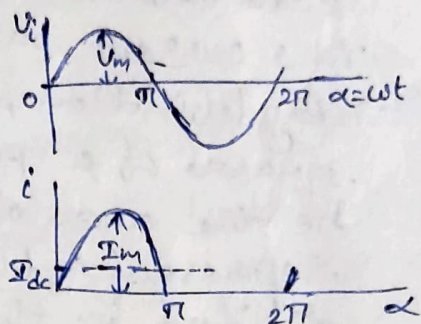 Vi
Vm
0 π 2π α=ωt
i
Im
Idc
π 2π α